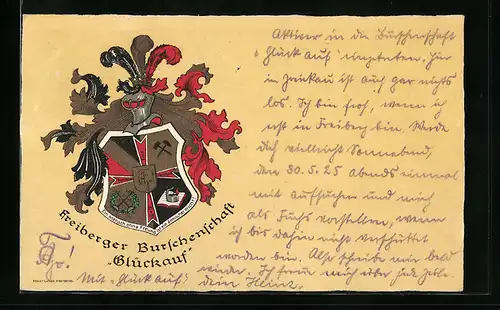 Aktiver in die Burschenschaft
"Glück auf" eingetreten. Hier
in Zwickau ist auch gar nichts
los. Ich bin froh, wenn ich
erst in Freiberg bin. Werde
dich vielleicht Sonnabend,
den 30.5.25 abends einmal
mit aufsuchen und mich
als Fuchs vorstellen, wenn
ich bis dahin nicht verschüttet
worden bin. Also schreibe mir bald
wieder. Ich freue mich über jede
dein Heinz.
Freiberger Burschenschaft
"Glückauf"
Mit "Glück auf"